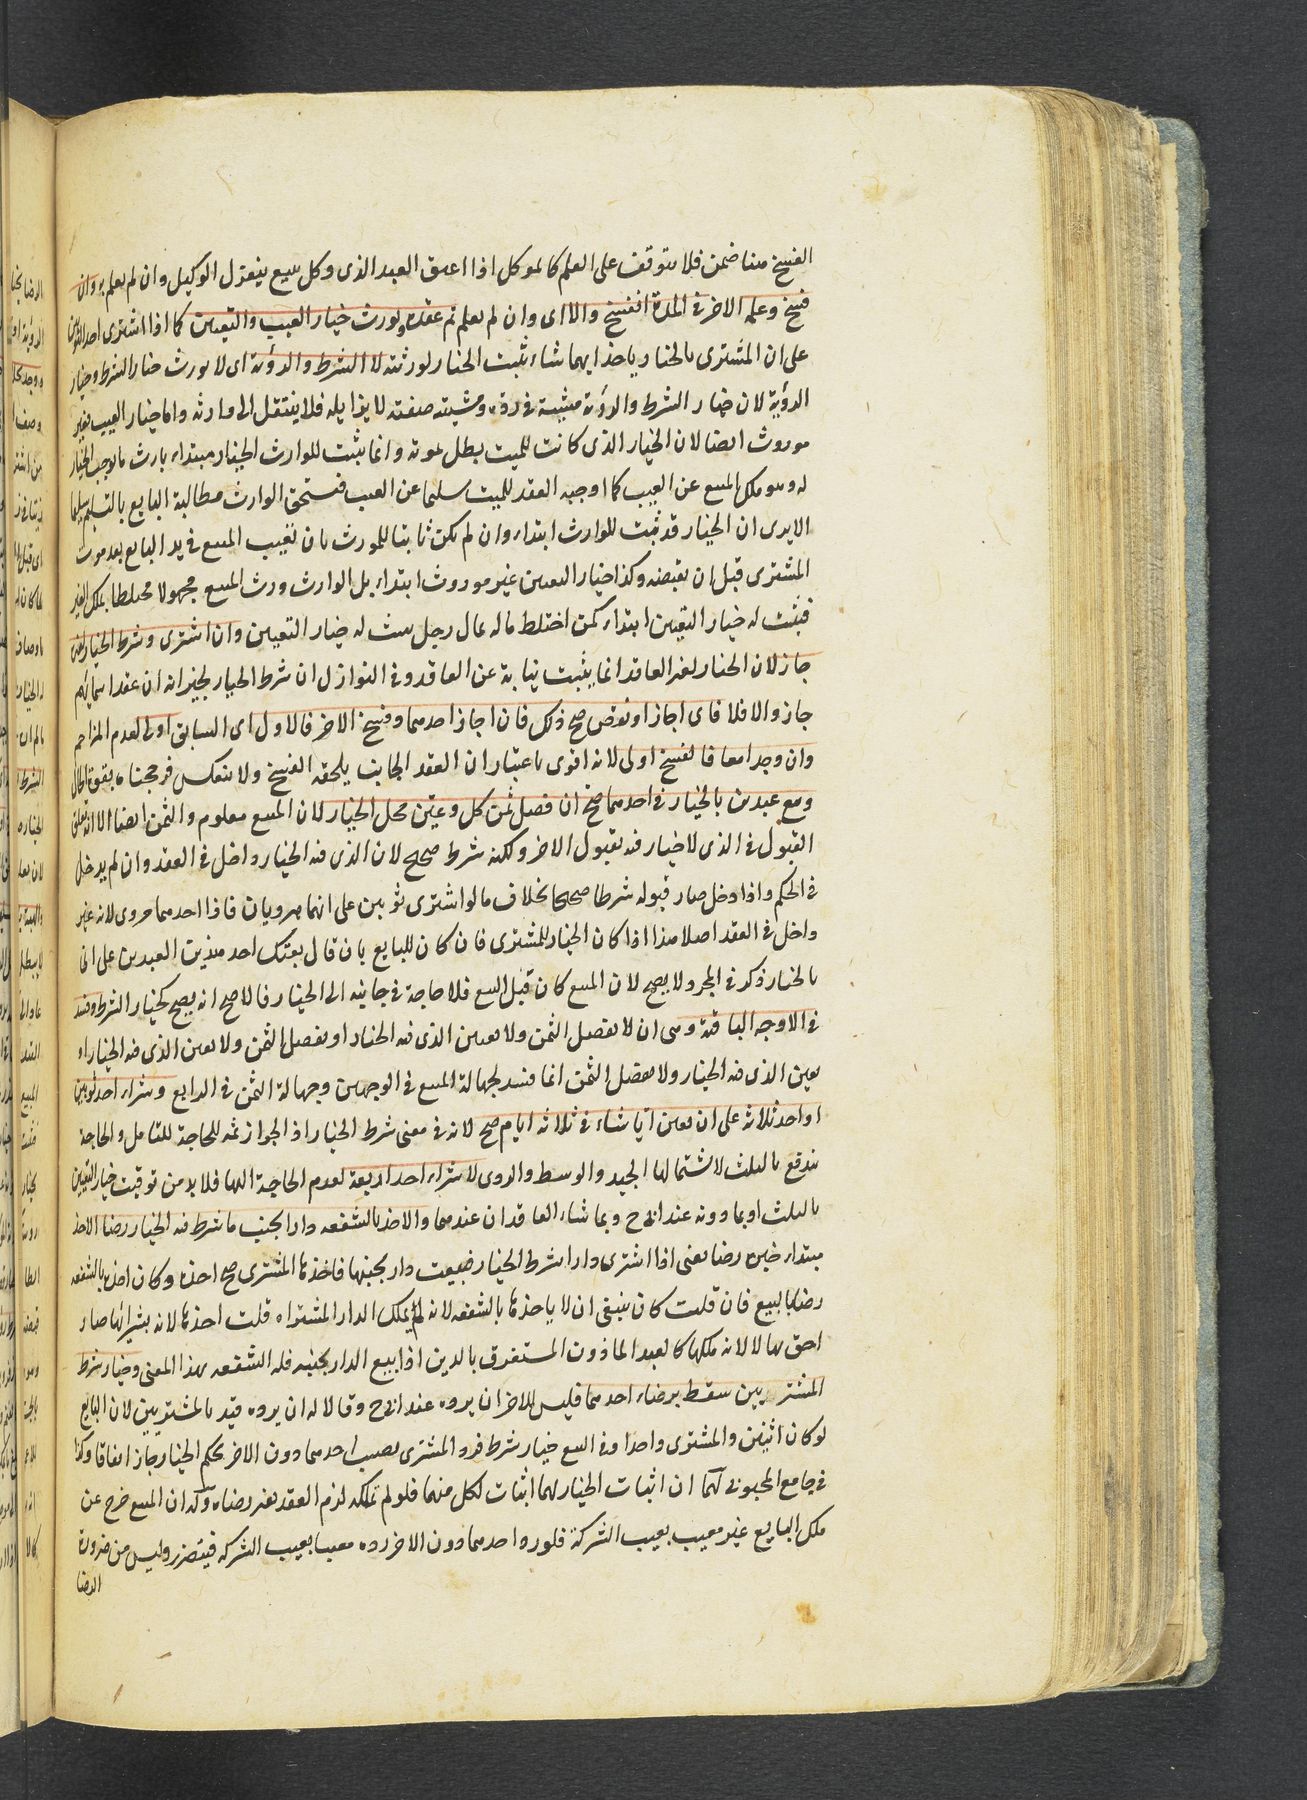 الفسخ هنا ضمن فلا يتوقف على العلم كالموكل اذا اعتق العبد الذى وكل ببيع ينعزل الوكيل وان لم يعلم به وان
فسخ وعلم الاخر فى المدة انفسخ والا اى وان لم يعلم تم عقده ويورث خيار العيب والتعيين كما اذا اشترى احد الثوبين
على ان المشترى بالخيار ياخذ ايهما شاء يثبت الخيار لورثته لا الشرط والرؤية اى لا يورث خيار الشرط وخيار
الرؤية لان خيار الشرط والرؤية مشيئة فى رده ومشيئته صفته لا يزايله فلا ينتقل الى وارثه واما خيار العيب فغير
موروث ايضا لان الخيار الذى كانت للميت بطل بموته وانما يثبت للوارث الخيار مبتداء بارث ما يوجب الخيار
له وهو ملك المبيع عن العيب كما اوجبه العقد للميت سليما عن العيب فيستحق الوارث مطالبة البايع بالتسليم سليما
الا يرى ان الخيار قد ثبت للوارث ابتداء وان لم يكن ثابتا للمورث بان تعيب المبيع فى يد البايع بعد موت
المشترى قبل ان يقبضه وكذا خيار التعيين غير موروث ابتداء بل الوارث ورث المبيع مجهولا مختلطا بملك الغير
فيثبت له خيار التعيين ابتداء كمن اختلط ماله بمال رجل يثبت له خيار التعيين وان اشترى وشرط الخيار لغيره
جاز لان الخيار لغير العاقد انما يثبت نيابة عن العاقد وفى النوازل ان شرط الخيار لجيرانه ان عد اسمائهم
جاز والا فلا فاى اجاز او نقض صح ذلك فان اجاز احدهما وفسخ الاخر فالاول اى السابق اولى لعدم المزاحم
وان وجدا معا فالفسخ اولى لانه اقوى باعتبار ان العقد الجايز يلحقه الفسخ ولا ينعكس فرجحناه بقوة الحال
وبيع عبدين بالخيار فى احدهما صح ان فصل ثمن كل وعين محل الخيار لان المبيع معلوم والثمن ايضا الا انه علق
القبول فى الذى لا خيار فيه بقبول الاخر ولكنه شرط صحيح لان الذى فيه الخيار داخل فى العقد وان لم يدخل
فى الحكم واذا دخل صار قبوله شرطا صحيحا بخلاف ما لو اشترى ثوبين على انهما هرويان فاذا احدهما مروى لانه غير
داخل فى العقد اصلا هذا اذا كان الخيار للمشترى فان كان للبايع بان قال بعتك احد هذين العبدين على انى
بالخيار ذكر فى المجرد لا يصح لان المبيع كان قبل البيع فلا حاجة فى جانبه الى الخيار فالاصح انه يصح كخيار الشرط وفسد
فى الاوجه الباقية وهى ان لا يفصل الثمن ولا يعين الذى فيه الخيار او يفصل الثمن ولا يعين الذى فيه الخيار او
يعين الذى فيه الخيار ولا يفصل الثمن انما فسد لجهالة المبيع فى الوجهين وجهالة الثمن فى الرابع وشراء احد ثوبين
او احد ثلاثة على ان يعين ايا شاء فى ثلاثة ايام صح لانه فى معنى شرط الخيار اذ الجواز ثمه للحاجة للتامل والحاجة
تندفع بالثلث لاشتمالها الجيد والوسط والردى لا شراء احد اربعة لعدم الحاجة اليها فلا بد من توقيت خيار التعيين
بالثلث او بما دونه عند ابى ح وبما شاء العاقدان عندهما والاخذ بالشفعه دارا بجنب ما شرط فيه الخيار رضا الاخذ
مبتداء خبره رضا يعنى اذا اشترى دارا بشرط الخيار فبيعت دار بجنبها فاخذها المشترى صح اخذه وكان اخذه بالشفعه
رضا بالبيع فان قلت كان ينبغى ان لا ياخذها بالشفعه لانه لم يملك الدار المشتراه قلت اخذها لانه بشرائها صار
احق بها لا لانه ملكها كالعبد الماذون المستغرق بالدين اذا بيع الدار بجنبه فله الشفعه بهذا المعنى وخيار شرط
المشتريين سقط برضاء احدهما فليس للاخر ان يرده عند ابى ح وقالا له ان يرده قيد بالمشتريين لان البايع
لو كان اثنين والمشترى واحدا وفى البيع خيار شرط فرد المشترى نصيب احدهما دون الاخر بحكم الخيار جاز اتفاقا وكذا
فى جامع المحبوبى لهما ان اثبات الخيار لهما اثبات لكل منهما فلو لم يملكه لزم العقد بغير رضاه وله ان المبيع خرج عن
ملك البايع غير معيب بعيب الشركة فلو رد احدهما دون الاخر رده معيبا بعيب الشركه فيتضرر وليس من ضرورة
الرضا